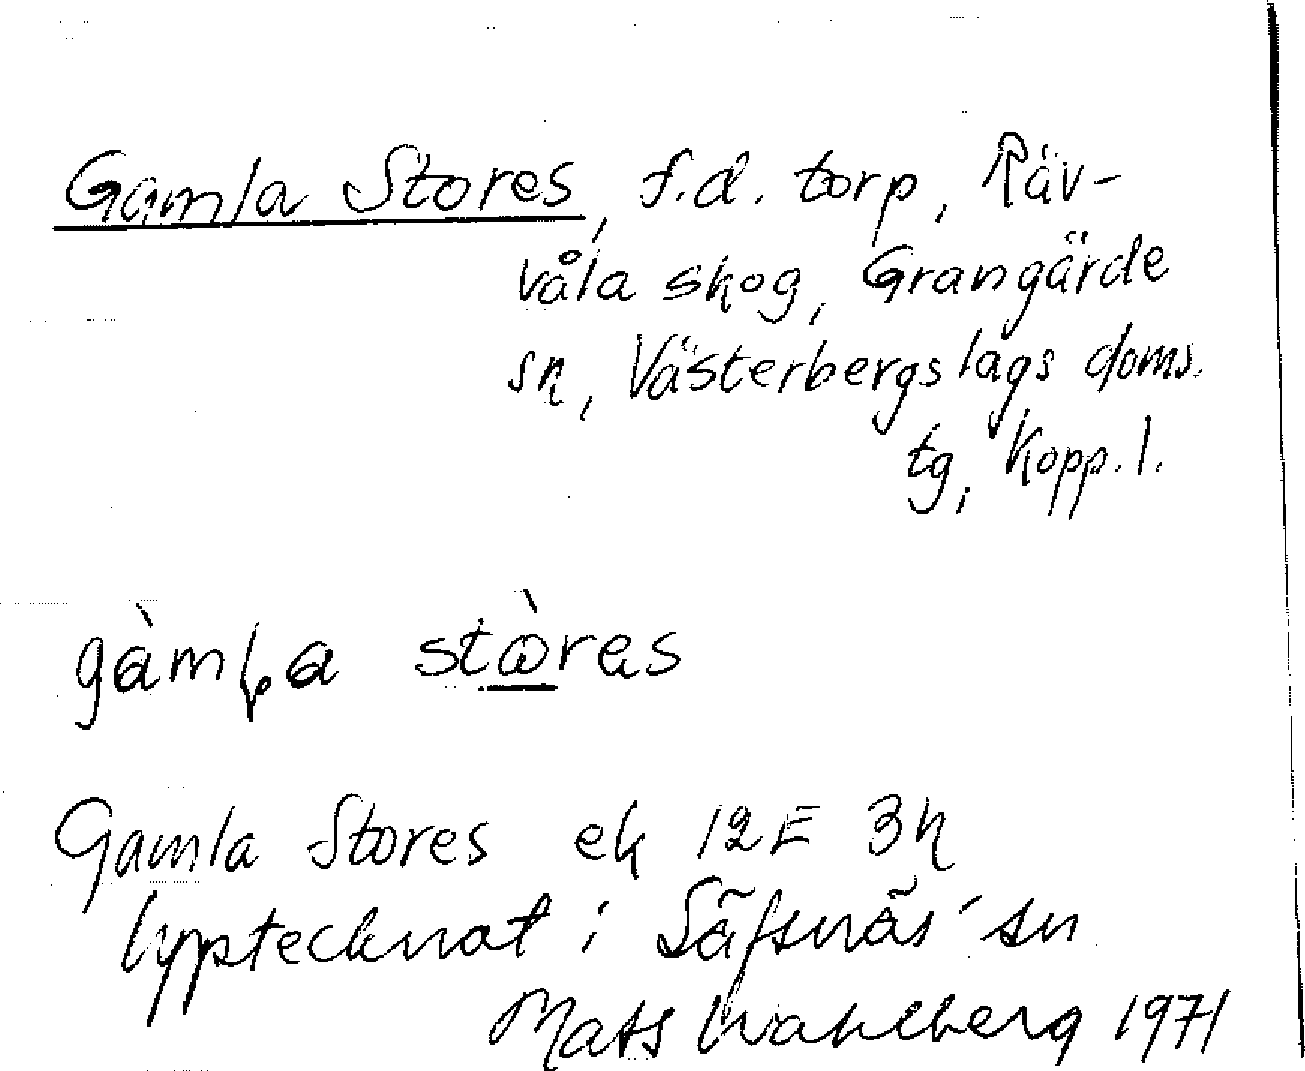 Gamla Stores, f.d. torp, Räv-
våla skog, Grangärde
sn, Västerbergslags doms.
tg, Kopp. l.
gàmļa stɷ̀res
Gamla Stores ek 12E 3h
Upptecknat i Säfsnäs sn
Mats Wahlberg 1971